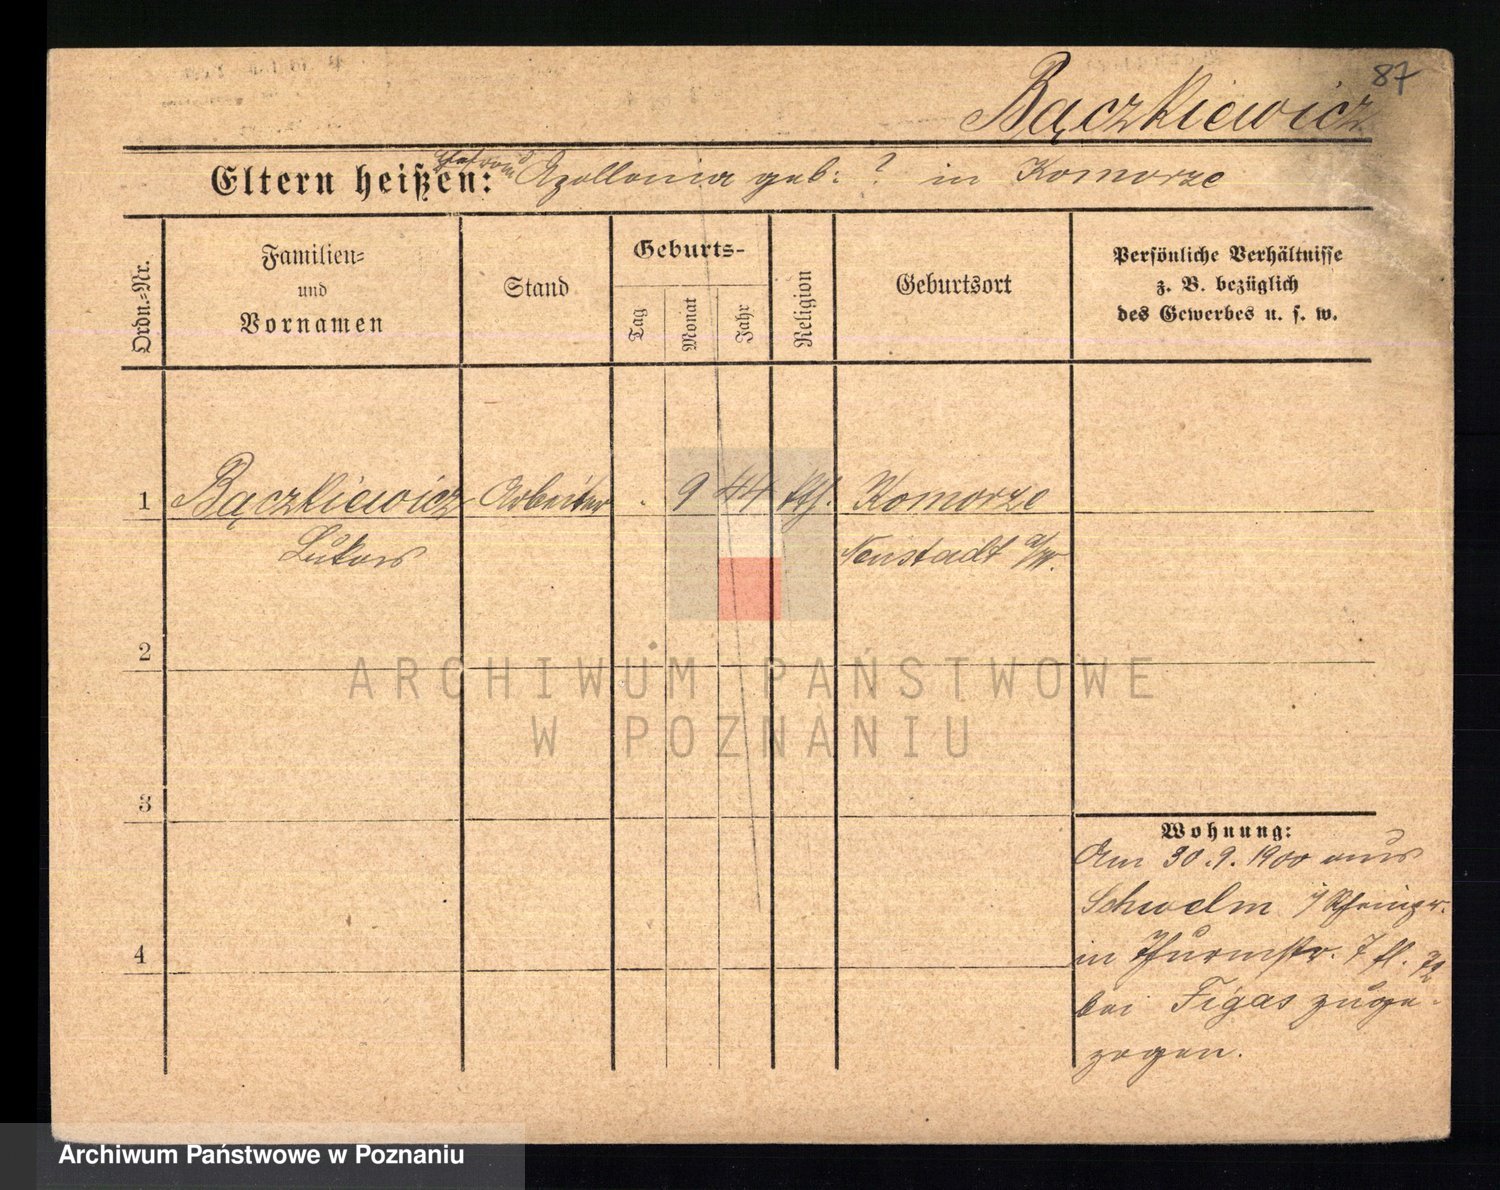 87
Bączkiewicz
Eltern heißen: Apollonia geb: ? in Komorze
Ordn.-Nr.
Familien-
und
Vornamen
Stand
Geburts-
Tag
Monat
Jahr
Religion
Geburtsort
Persönliche Verhältnisse
z. B. bezüglich
des Gewerbes u. s. w.
1 Bączkiewicz Arbeiter . 9 44 kth. Komorze
Lukas Neustadt a/W.
2
3
4
Wohnung:
Am 30.9.1900 aus
Schwelm i/ Rheinpr.
in Thurmstr. 7
bei Figas zuge-
zogen.
ARCHIWUM PAŃSTWOWE
W POZNANIU
Archiwum Państwowe w Poznaniu